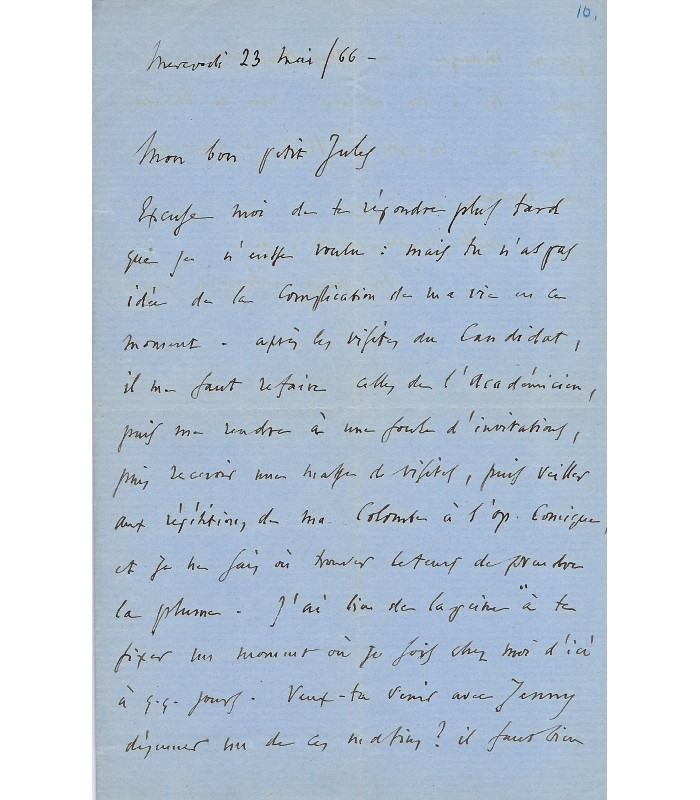 10.
Mercredi 23 mai /66 -
Mon bon petit Jules
Excuse moi de te répondre plus tard
que je n'eusse voulu : mais tu n'as pas
idée de la complication de ma vie en ce
moment - après les visites du Candidat,
il me faut refaire celles de l'Académicien,
puis me rendre à une foule d'invitations,
puis recevoir une masse de visites, puis veiller
aux répétitions de ma Colombe à l'Op. Comique,
et je ne sais où trouver le temps de prendre
la plume - J'ai bien de la peine à te
fixer un moment où je sois chez moi d'ici
à q.q. jours. Veux-tu venir avec Jenny
déjeuner un de ces matins ? il faut bien